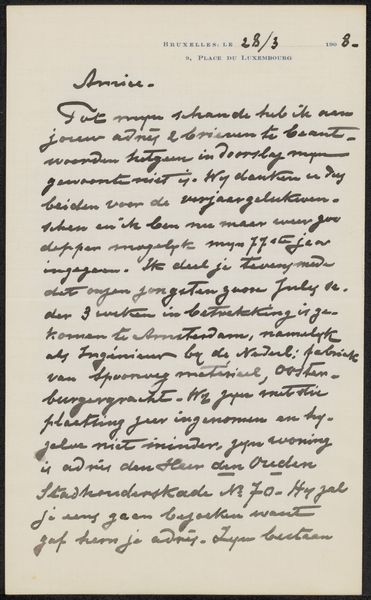 BRUXELLES, LE 28/3 1908-
9, PLACE DU LUXEMBOURG
Amice.
Tot mijn schande heb ik aan
jouw adres 2 brieven te beant-
woorden hetgeen in doorslag mijn
gewoonte niet is. Wij danken u
beiden voor de verjaargelukwen-
schen en ik ben nu maar weer zoo
dapper mogelijk mijn 77ste jaar
ingegaan. Ik deel je tevens mede
dat onzen jongsten zoon Jules se-
der 3 weken in betrekking is ge-
komen te Amsterdam, namelijk
als Ingenieur bij de Nederl: fabriek
van Spoorweg materieel, Ooster-
burgergracht. Wij zijn met die
plaatsing zeer ingenomen en hij-
zelve niet minder. Zijn woning
is adres den Heer den Ouden
Stadhouderskade No 70- Hij zal
je eens gaan bezoeken want
gaf hem je adres. Zijn bestaan